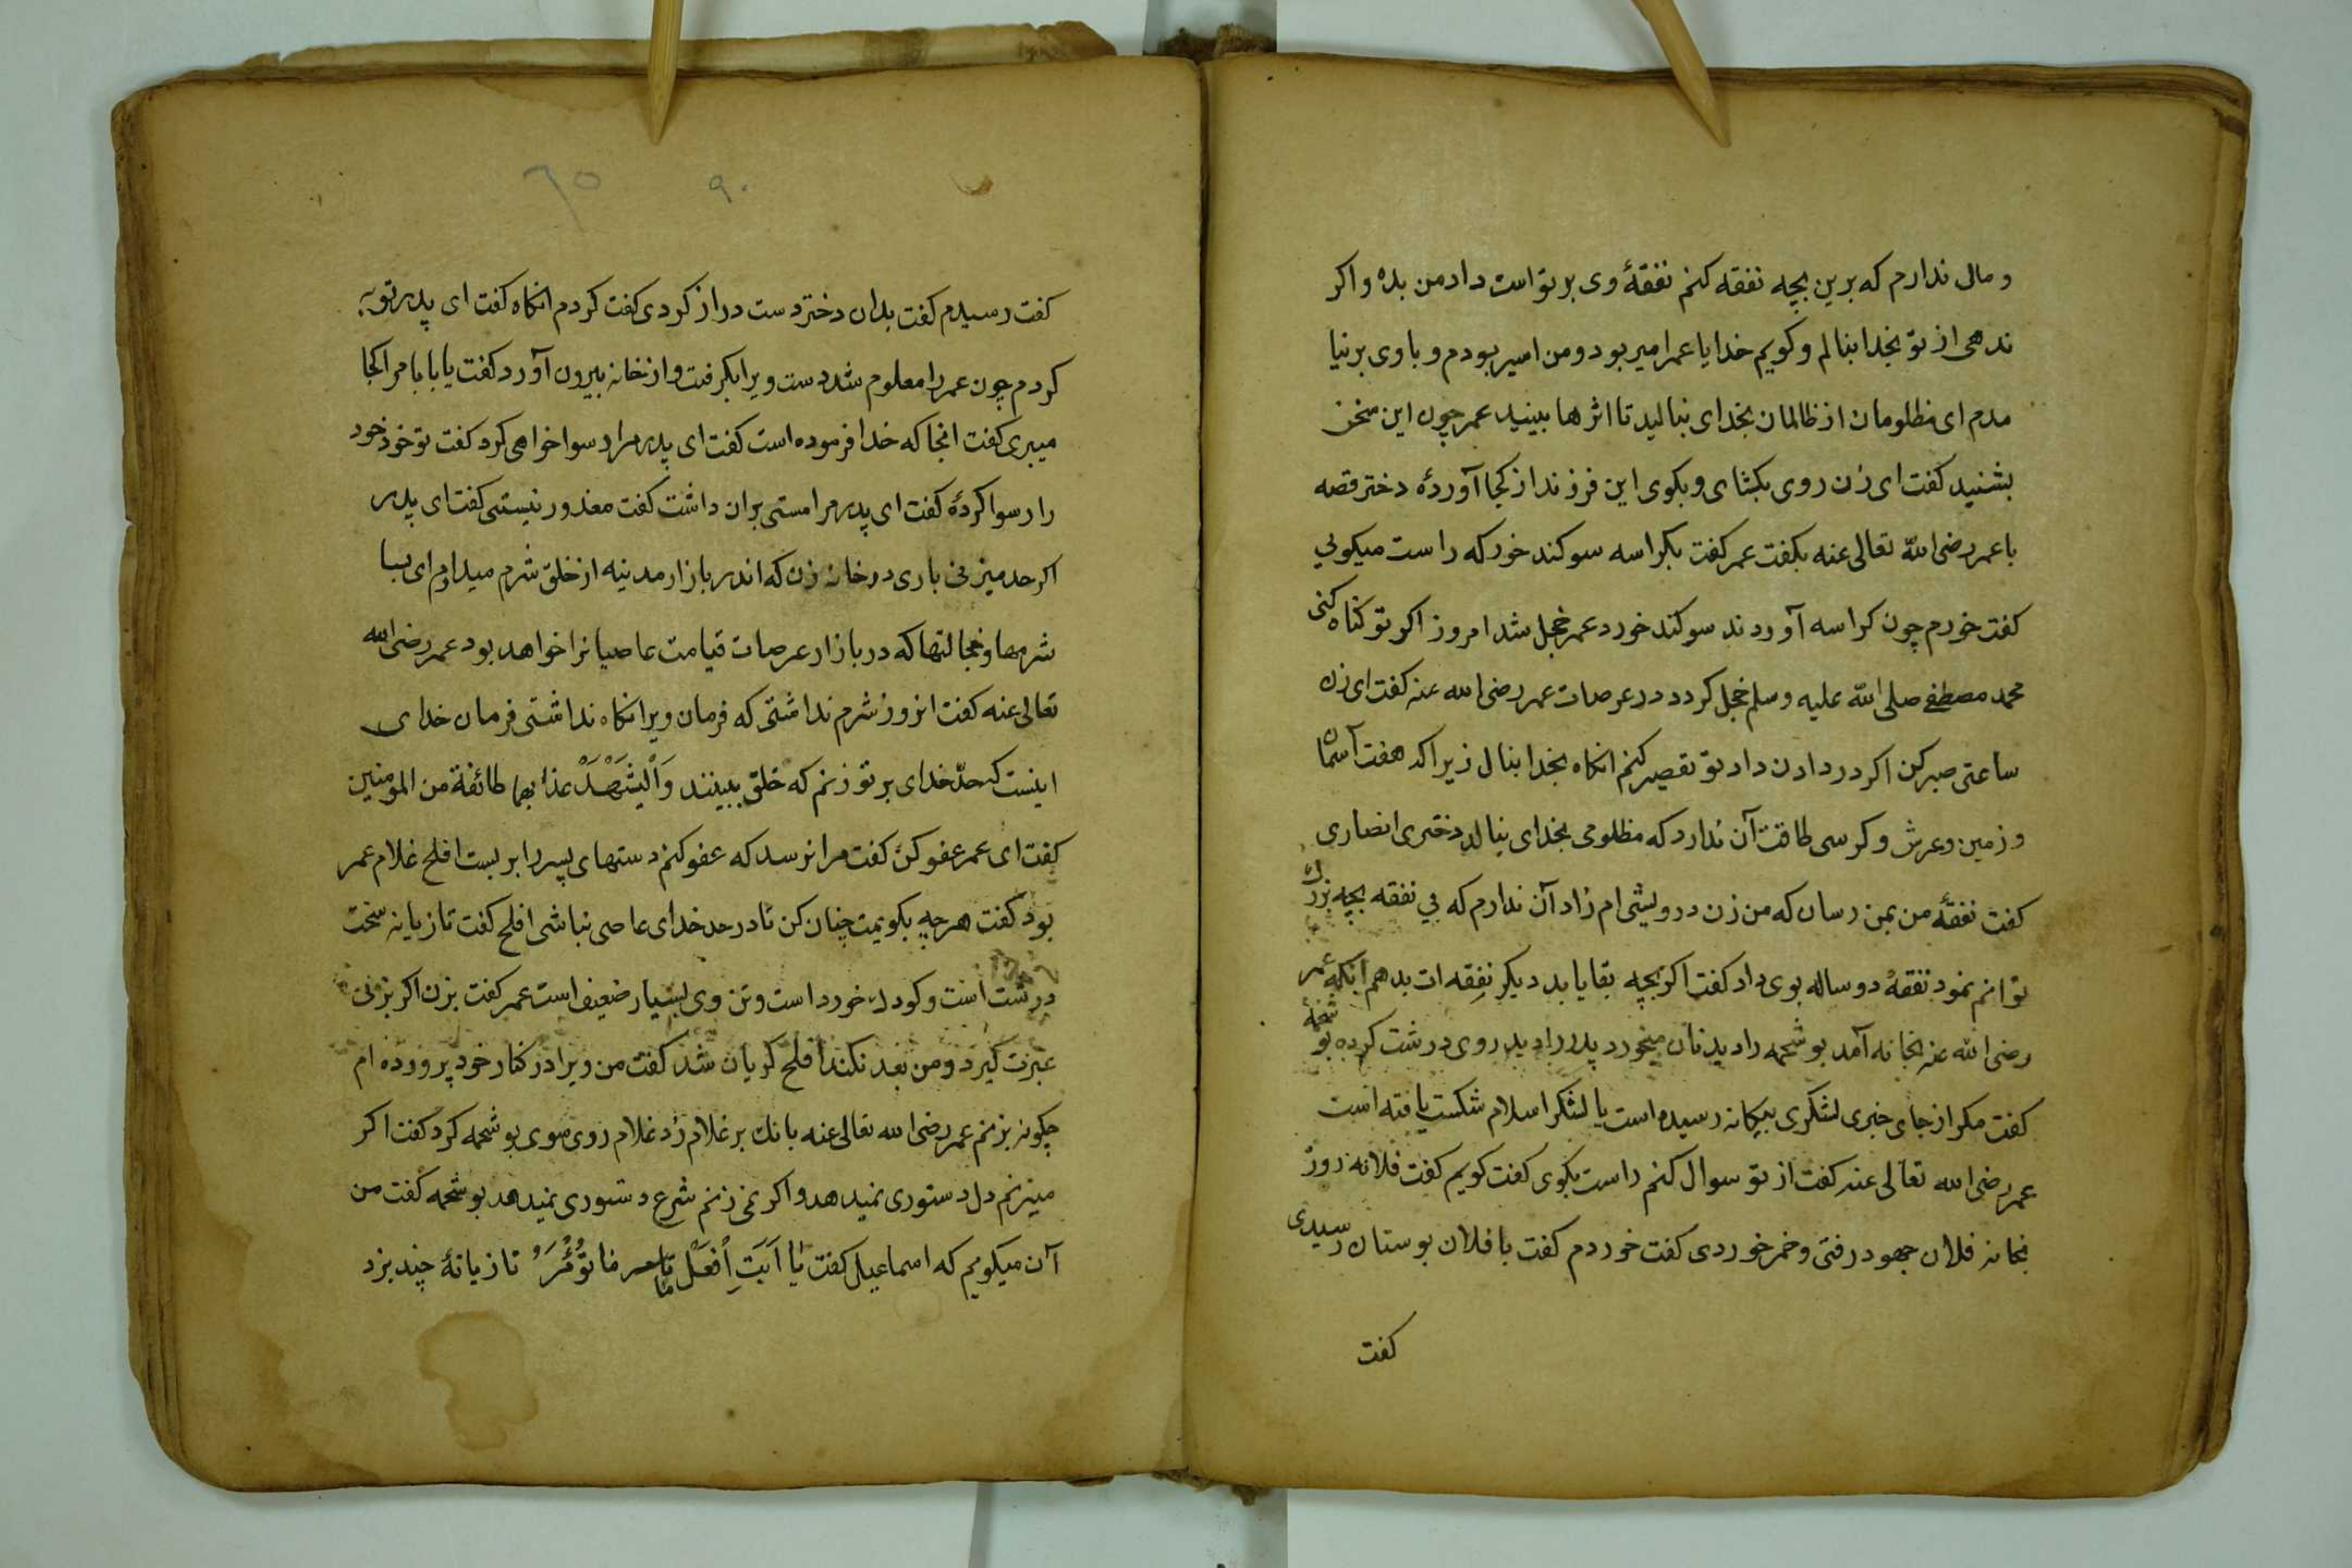 و مال ندارم که برین بچه نفقه کنم نفقهٔ وی بر تو است داد من بده و اکر
ندهی از تو بخدا بنالم و کویم خدایا عمر امیر بود و من اسیر بودم و با وی بر نیا
مدم ای مظلومان از ظالمان بخدای بنالید تا اثرها ببینید عمر چون این سخن
بشنید کفت ای زن روی بکشای و بکوی این فرزند از کجا آوردهٔ دختر قصه
با عمر رضی الله تعالی عنه بکفت عمر کفت بکراسه سوکند خور که راست میکویی
کفت خورم چون کراسه آوردند سوکند خورد عمر خجل شد امروز اکر تو کناه کنی
محمد مصطفی صلی الله علیه وسلم خجل کردد در عرصات عمر رضی الله عنه کفت ای زن
ساعتی صبر کن اکر در دادن داد تو تقصیر کنم انکاه بخدا بنال زیرا که هفت آسمان
و زمین و عرش و کرسی طاقت آن ندارد که مظلومی بخدای بنالد دختری انصاری
کفت نفقهٔ من بمن رسان که من زن درویشی ام زاد آن ندارم که بی نفقه بچه بزرك
توانم نمود نفقهٔ دو ساله بوی داد کفت اکر بچه بقا یابد دیکر نفقه ات بدهم انکه عمر
رضی الله عنه بخانه آمد بو شحمه را دید نان میخورد پدر را دید روی درشت کرده بو شحمهٔ
کفت مکر از جای خبری لشکری بیکانه رسیده است یا لشکر اسلام شکست یافته است
عمر رضی الله تعالی عنه کفت از تو سوال کنم راست بکوی کفت کویم کفت فلانه روز
بخانه فلان جهود رفتی و خمر خوردی کفت خوردم کفت با فلان بوستان رسیدی
کفت
۶۵ ۹۰
کفت رسیدم کفت بدان دختر دست دراز کردی کفت کردم انکاه کفت ای پدر توبه
کردم چون عمر را معلوم شد دست ویرا بکرفت و از خانه بیرون آورد کفت یا بابا مرا کجا
میبری کفت انجا که خدا فرموده است کفت ای پدر مرا رسوا خواهی کرد کفت تو خود خود
را رسوا کردهٔ کفت ای پدر مرا مستی بران داشت کفت معذور نیستی کفت ای پدر
اکر حد میزنی باری در خانه زن که اندر بازار مدینه از خلق شرم میدارم ای بسا
شرمها و خجالتها که در بازار عرصات قیامت عاصیانرا خواهد بود عمر رضی الله
تعالی عنه کفت انروز شرم نداشتی که فرمان ویرا نکاه نداشتی فرمان خدای
اینست که حدّ خدای بر تو زنم که خلق ببینند وَلْیَشْهَدْ عذابهما طائفة من المومنین
کفت ای عمر عفو کن کفت مرا نرسد که عفو کنم دستهای پسر را بر بست افلح غلام عمر
بود کفت هر چه بکویمت چنان کن تا در حد خدای عاصی نباشی افلح کفت تازیانه سخت
درشت است و کودك خورد است و تن وی بسیار ضعیف است عمر کفت بزن اکر بزنی
عبرت کیرد و من بعد نکند افلح کریان شد کفت من ویرا در کنار خود پرورده ام
چکونه بزنم عمر رضی الله تعالی عنه بانك بر غلام زد غلام روی سوی بو شحمه کرد کفت اکر
میزنم دل دستوری نمیدهد و اکر نمی زنم شرع دستوری نمیدهد بو شحمه کفت من
آن میکویم که اسماعیل کفت یٰا اَبَتِ اُفْعَلْ ما تُؤْمَرُ تازیانهٔ چند بزد